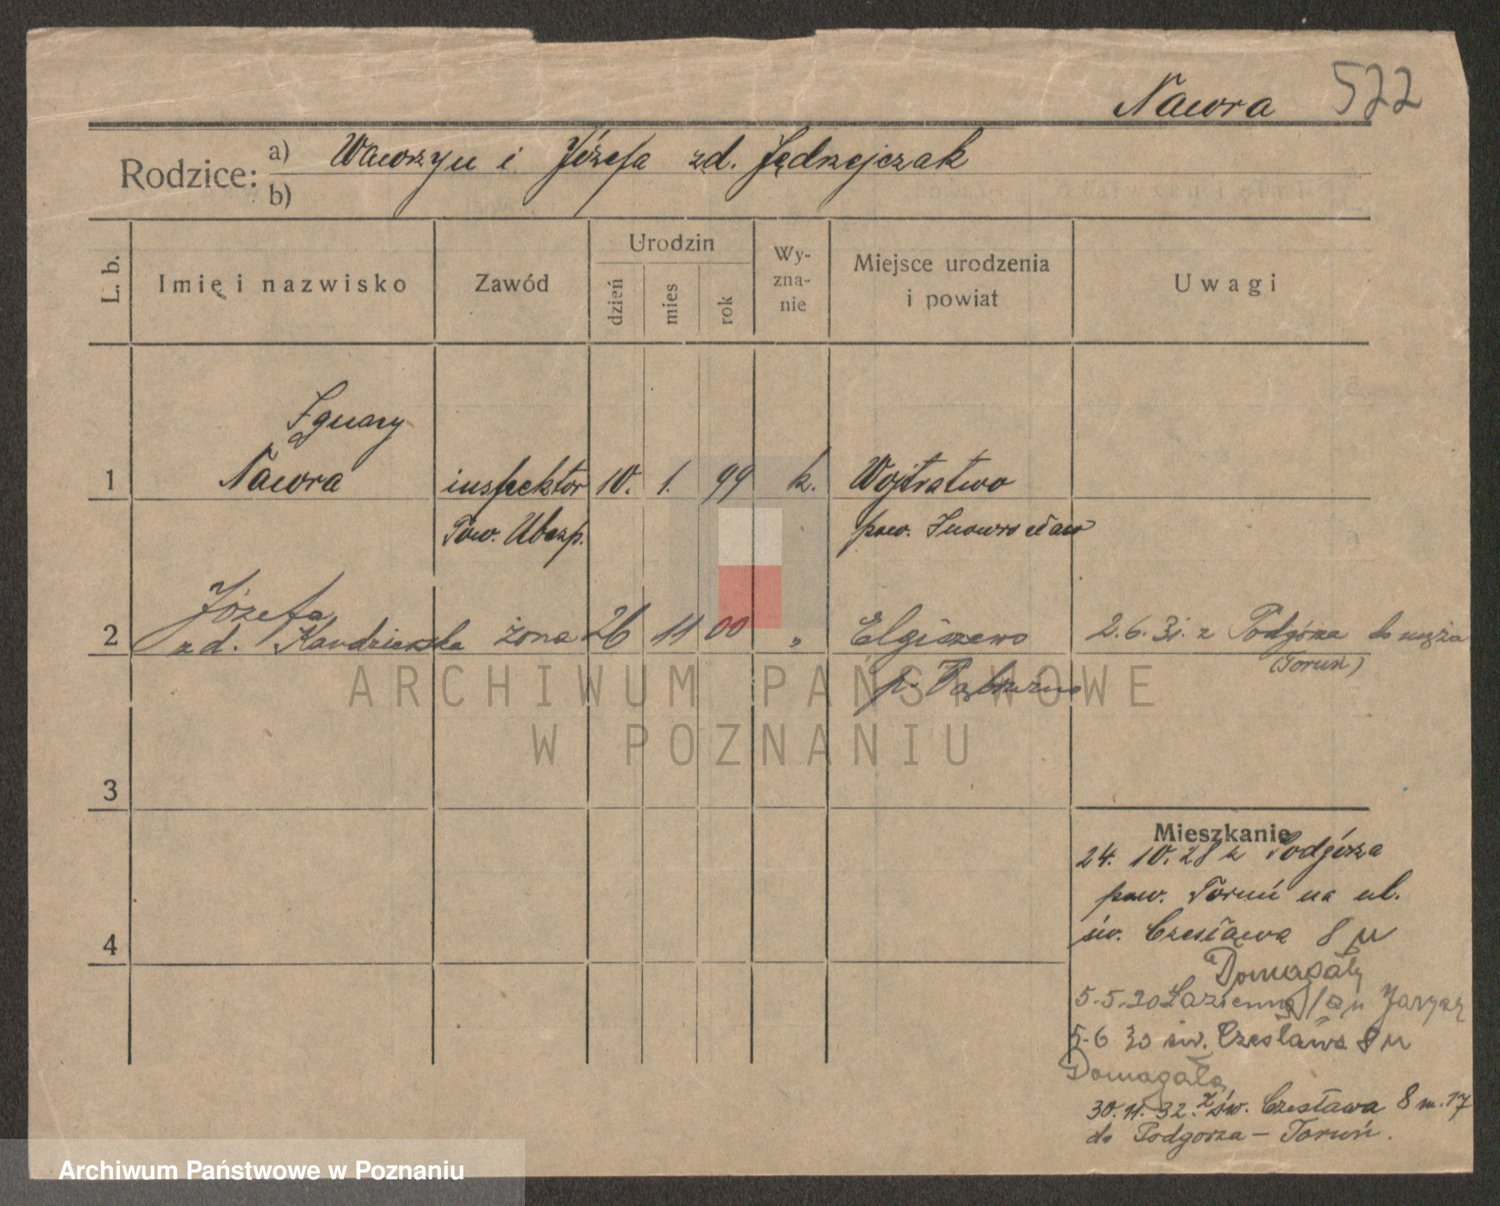 Nawra 522
Rodzice: a) Wawrzyn i Józefa zd. Jędrzejczak
b)
L. b. Imię i nazwisko Zawód Urodzin dzień mies rok Wy-zna-nie Miejsce urodzenia i powiat Uwagi
Ignacy
1 Nawra inspektor 10. 1. 99 k. Wojtostwo
Tow. Ubezp. pow. Inowrocław
Józefa
2 zd. żona 26 11 00 „ Elgiszewo 2.6.31. z Podgórza do męża
(Toruń)
p.
ARCHIWUM PAŃSTWOWE
W POZNANIU
3
Mieszkanie
24. 10. 28 z Podgórza
pow. Toruń na ul.
4 św. Czesława 8 u
Domagały
5-5-30 Łazienna u
5-6 30 św. Czesława 8 u
Domagała
30.11.32. z św. Czesława 8 m. 17
do Podgorza - Toruń.
Archiwum Państwowe w Poznaniu